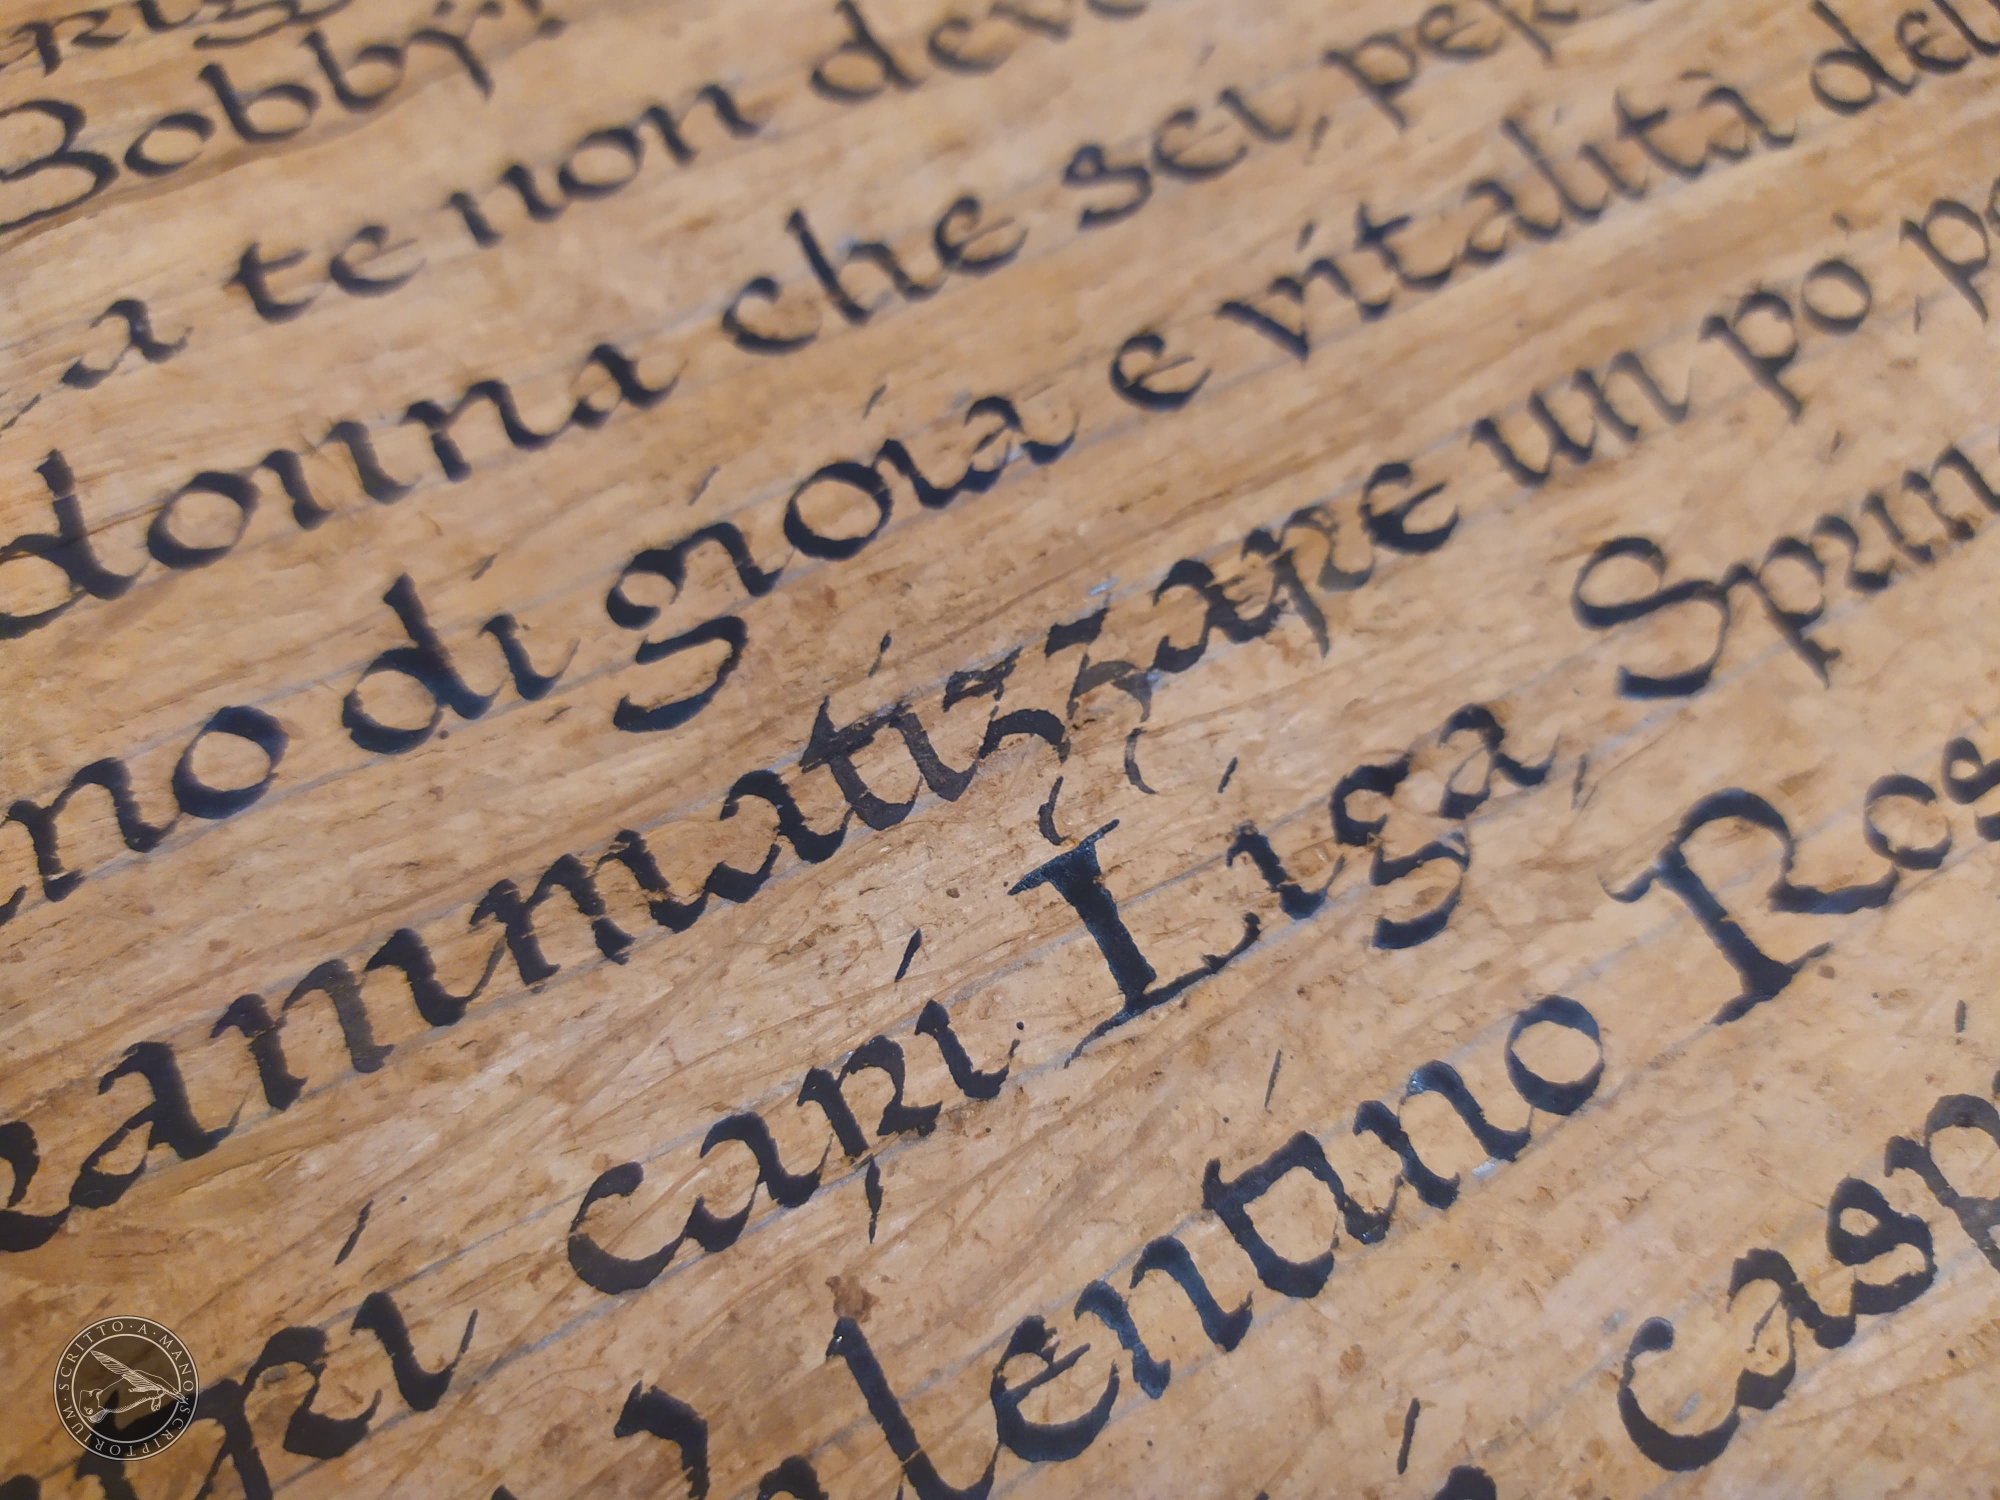 Bobby!
, a te non deve
donna che sei, per
no di gioia e vitalità del
ammatizzare un po' p
cari Lisa, Sprin
lentino Ros
casp
SCRITTO · A · MANO · SCRIPTORIUM ·